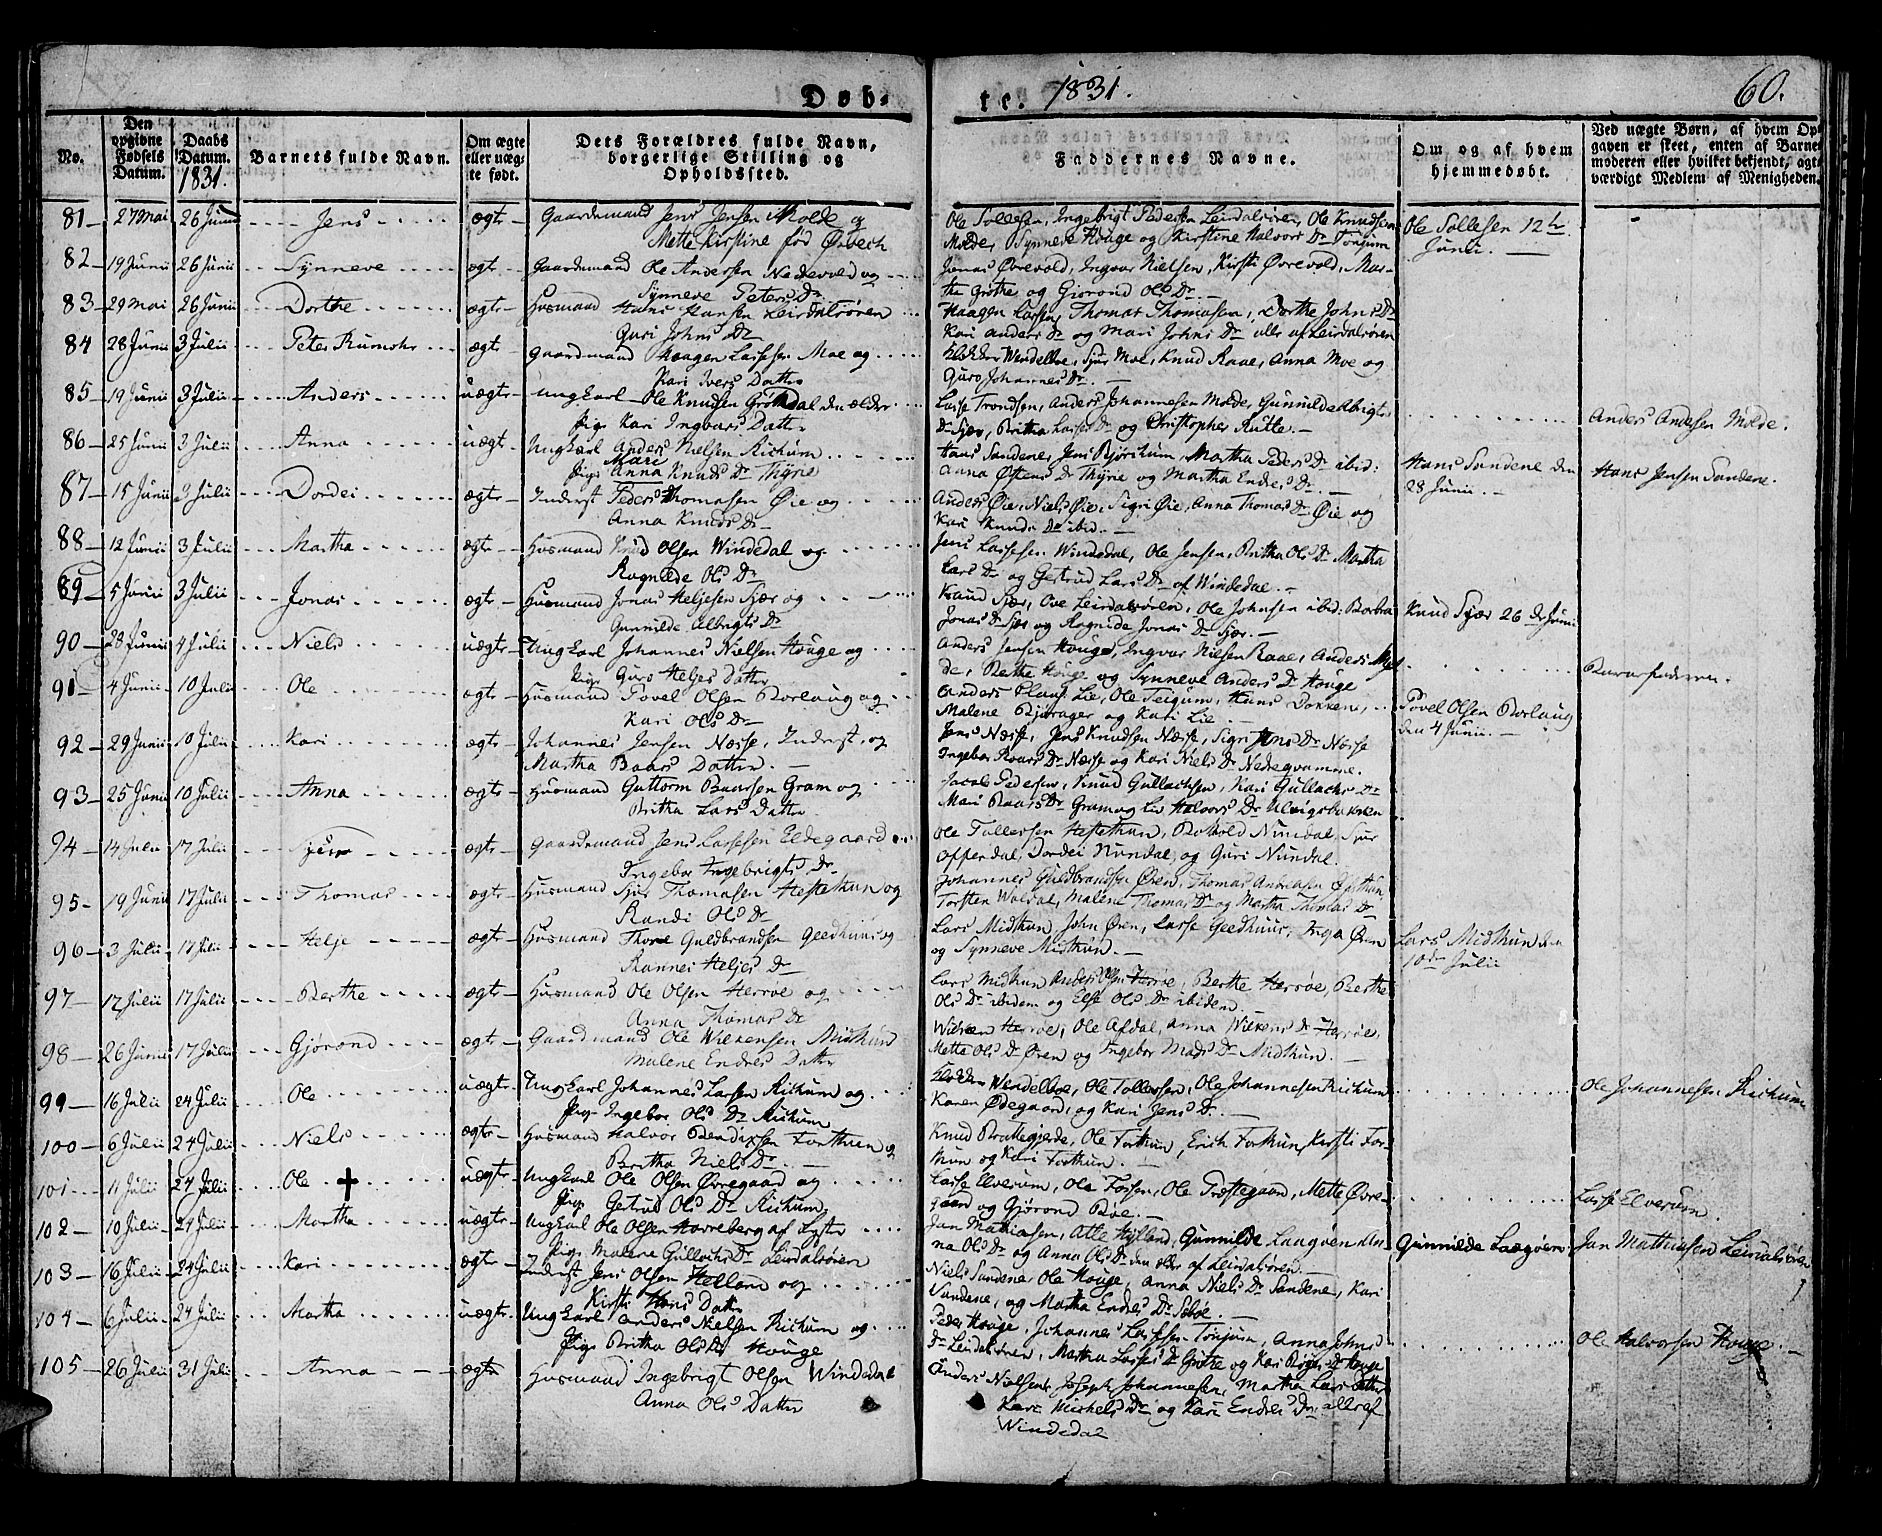 Døb-
te. 1831.
60.
No.
Den opgivne Fødsels Datum.
Daabs Datum. 1831.
Barnets fulde Navn.
Om ægte eller uægte født.
Dets Forældres fulde Navn, borgerlige Stilling og Opholdssted.
Faddernes Navne.
Om og af hvem hjemmedøbt.
Ved uægte Børn, af hvem Opgaven er skeet, enten af Barnemoderen eller hvilket bekjendt, agtværdigt Medlem af Menigheden.
81 27 Mai 26 Junii Jens ægt Gaardmand Jens Jensen Molde og
Mette Kirstine fød Ørbech
Ole Tollesen, Ingebrigt Pedersen Leirdalsøren, Ole Knudsen
Molde, Synneve Houge og Kirstine Halvors Dr Tønjum
Ole Tollesen 12te
Junii.
82 19 Junii 26 Junii Synneve ægt Gaardmand Ole Andersen Nedrevold og
Synneve Peters Dr
Jonas Øvrevold, Ingvar Nielsen, Kirsti Øvrevold, Mar-
the Grøthe og Gjørond Ols Dr
83 29 Mai 26 Junii Dorthe ægte Husmand Hans Hansen Leirdalsøren
Guri Johns Dr
Haagen Larsen, Thomas Thomasen, Dorthe Johns Dr
Kari Anders Dr og Mari Johns Dr alle af Leirdalsøren
84 28 Junii 3 Julii Peter Rumohr ægt Gaardmand Haagen Lassesen Moe og
Kari Ivers Datter
Klokker Wendelboe, Sjur Moe, Knud Raae, Anna Moe og
Guro Johannes Dr
85 19 Junii 3 Julii Anders uægte Ungkarl Ole Knudsen Grøtdal den ældre
Pige Kari Ingvars Datter
Lasse Trondsen, Anders Johannesen Molde, Gunnilde Albrigts
Dr Sjær, Britha Lasse Dr og Christopher Rutte.
Anders Andersen Molde.
86 25 Junii 3 Julii Anna uægt Ungkarl Anders Nielsen Richum
Mari
Pige Anna Knuds Dr Thyne
Hans Sandene, Jens Bjørkum, Martha Peders Dr ibid:
Anna Østens Dr Thyne og Martha Endres Dr
Hans Sandene den
28 Junii.
Hans Jensen Sandene.
87 15 Junii 3 Julii Dordei ægte Inderst Peder Thomasen Øie og
Anna Knuds Dr
Anders Øie, Niels Øie, Sigri Øie, Anna Thomas Dr Øie og
Kari Knuds Dr ibid.
88 12 Junii 3 Julii Martha ægte Husmand Knud Olsen Windedal og
Ragnilde Ols Dr
Jens Lassesen Windedal, Ole Jensen, Britha Ols Dr Martha
Lars Dr og Gertrud Lars Dr af Windedal.
89 5 Junii 3 Julii Jonas ægte Husmand Jonas Heljesen Sjær og
Gunnilde Albrigts Dr
Knud Sjær, Ove Leirdalsøren, Ole Johnsen ibid: Barbra
Jonas Dr Sjær og Ragnilde Jonas Dr Sjær.
Knud Sjær 26de Junii
90 28 Junii 4 Julii Niels uægte Ungkarl Johannes Nielsen Houge og
Pige Guro Heljes Datter
Anders Jensen Houge, Ingvar Nielsen Raae, Anders Mol-
de, Berthe Houge og Synneve Anders Dr Houge
Barnefaderen.
91 4 Junii 10 Julii Ole ægte Husmand Povel Olsen Borlaug og
Kari Ols Dr
Anders Lie, Ole Teigum, Hans Dokken,
Malene Bjørager og Kari Lie
Povel Olsen Borlaug
den 4 Junii.
92 29 Junii 10 Julii Kari ægte Johannes Jensen Næsse, Inderst, og
Martha Baars Datter.
Jens Næsse, Jens Knudsen Næsse, Sigri Jens Dr Næsse
Ingebor Baars Dr Næsse og Kari Niels Dr Nedrequamme.
93 25 Junii 10 Julii Anna ægte Husmand Guttorm Baarsen Gram og
Britha Lars Datter
Jacob Pedersen, Knud Gullachsen, Kari Gullachs Dr
Mari Baars Dr Gram og Liv Halvors Dr
94 14 Julii 17 Julii Sjur ægte Gaardemand Jens Lassesen Eldegaard
Ingebor Ingebrigts Dr
Ole Tollersen Hestethun, Botold Nundal, Sjur
Offerdal, Dordei Nundal, og Guri Nundal.
95 19 Junii 17 Julii Thomas ægte Husmand Sjur Thomasen Hestethun og
Randi Ols Dr
Johannes Guldbrandsen Øren, Thomas Andreasen
Torsten Woldal, Malene Thomas Dr og Martha Thomas Dr
96 3 Julii 17 Julii Helje ægt Husmand Thore Guldbrandsen Geedhuus og
Rannei Heljes Dr
Lars Midthun, John Øren, Lasse Geedhuus, Inga Øren
og Synneve Midthun.
Lars Midthun den
10de Julii
97 12 Julii 17 Julii Berthe ægte Husmand Ole Olsen Herrøe og
Anna Thomas Dr
Lars Midthun Anders Olsen Herrøe, Berthe Herrøe, Berthe
Ols Dr ibidem og Else Ols Dr ibidem.
98 26 Junii 17 Julii Gjørond ægte Gaardmand Ole Wilkensen Midthun
Malene Endres Datter
Wilken Herrøe, Ole Afdal, Anna Wilkens Dr Herrøe,
Mette Ols Dr Øren og Ingebor Mads Dr Midthun.
99 16 Julii 24 Julii Ole uægte Ungkarl Johannes Larsen Richum og
Pige Ingebor Ols Dr Richum
Klokker Wendelboe, Ole Tollersen, Ole Johannesen Richum
Karen Ødegaard, og Kari Jens Dr
Ole Johannesen Richum
100 6 Julii 24 Julii Niels ægte Husmand Halvor Bendixsen Forthun og
Britha Niels Dr
Knud Brattegjerde, Ole Forthun, Erich Forthun, Kirsti For-
thun og Kari Forthun.
101 11 Julii 24 Julii Ole ✝ uægte Ungkarl Ole Olsen Øvregaard og
Pige Getrud Ols Dr Richum
Lasse Elverum, Ole Larsen, Ole Præstegaard, Mette Øvre-
gaard og Gjørond Bøe.
Lasse Elverum.
102 10 Julii 24 Julii Martha uægte Ungkarl Ole Olsen Harreberg af Lyster
Pige Malene Gullichs Dr Leirdalsøren
Jan Mathiasen, Atle Hylland, Gunnilde Laagøen, An-
na Ols Dr og Anna Ols Dr den ældre af Leirdalsøren.
Gunnilde Laagøen
Jan Mathiasen Leirdalsøren
103 16 Julii 24 Julii Kari ægte Inderst Jens Olsen Helland og
Kirsti Hans Datter
Niels Sandene, Ole Houge, Anna Niels Dr Sandene, Kari
Sandene, og Martha Endres Dr Sæbøe.
104 6 Julii 24 Julii Martha uægte Ungkarl Anders Nielsen Richum og
Pige Britha Ols Dr Houge
Peder Houge, Johannes Lassesen Tønjum, Anna Johns
Dr Leirdalsøren, Martha Lasses Dr Grøthe og Kari Dr Houge
Ole Halvorsen Houge.
105 26 Julii 31 Julii Anna ægte Husmand Ingebrigt Olsen Windedal
Anna Ols Datter
Anders Nielsen, Joseph Johannesen, Martha Lars Datter
Kari Michels Dr og Kari Endres Dr alle af
Windedal